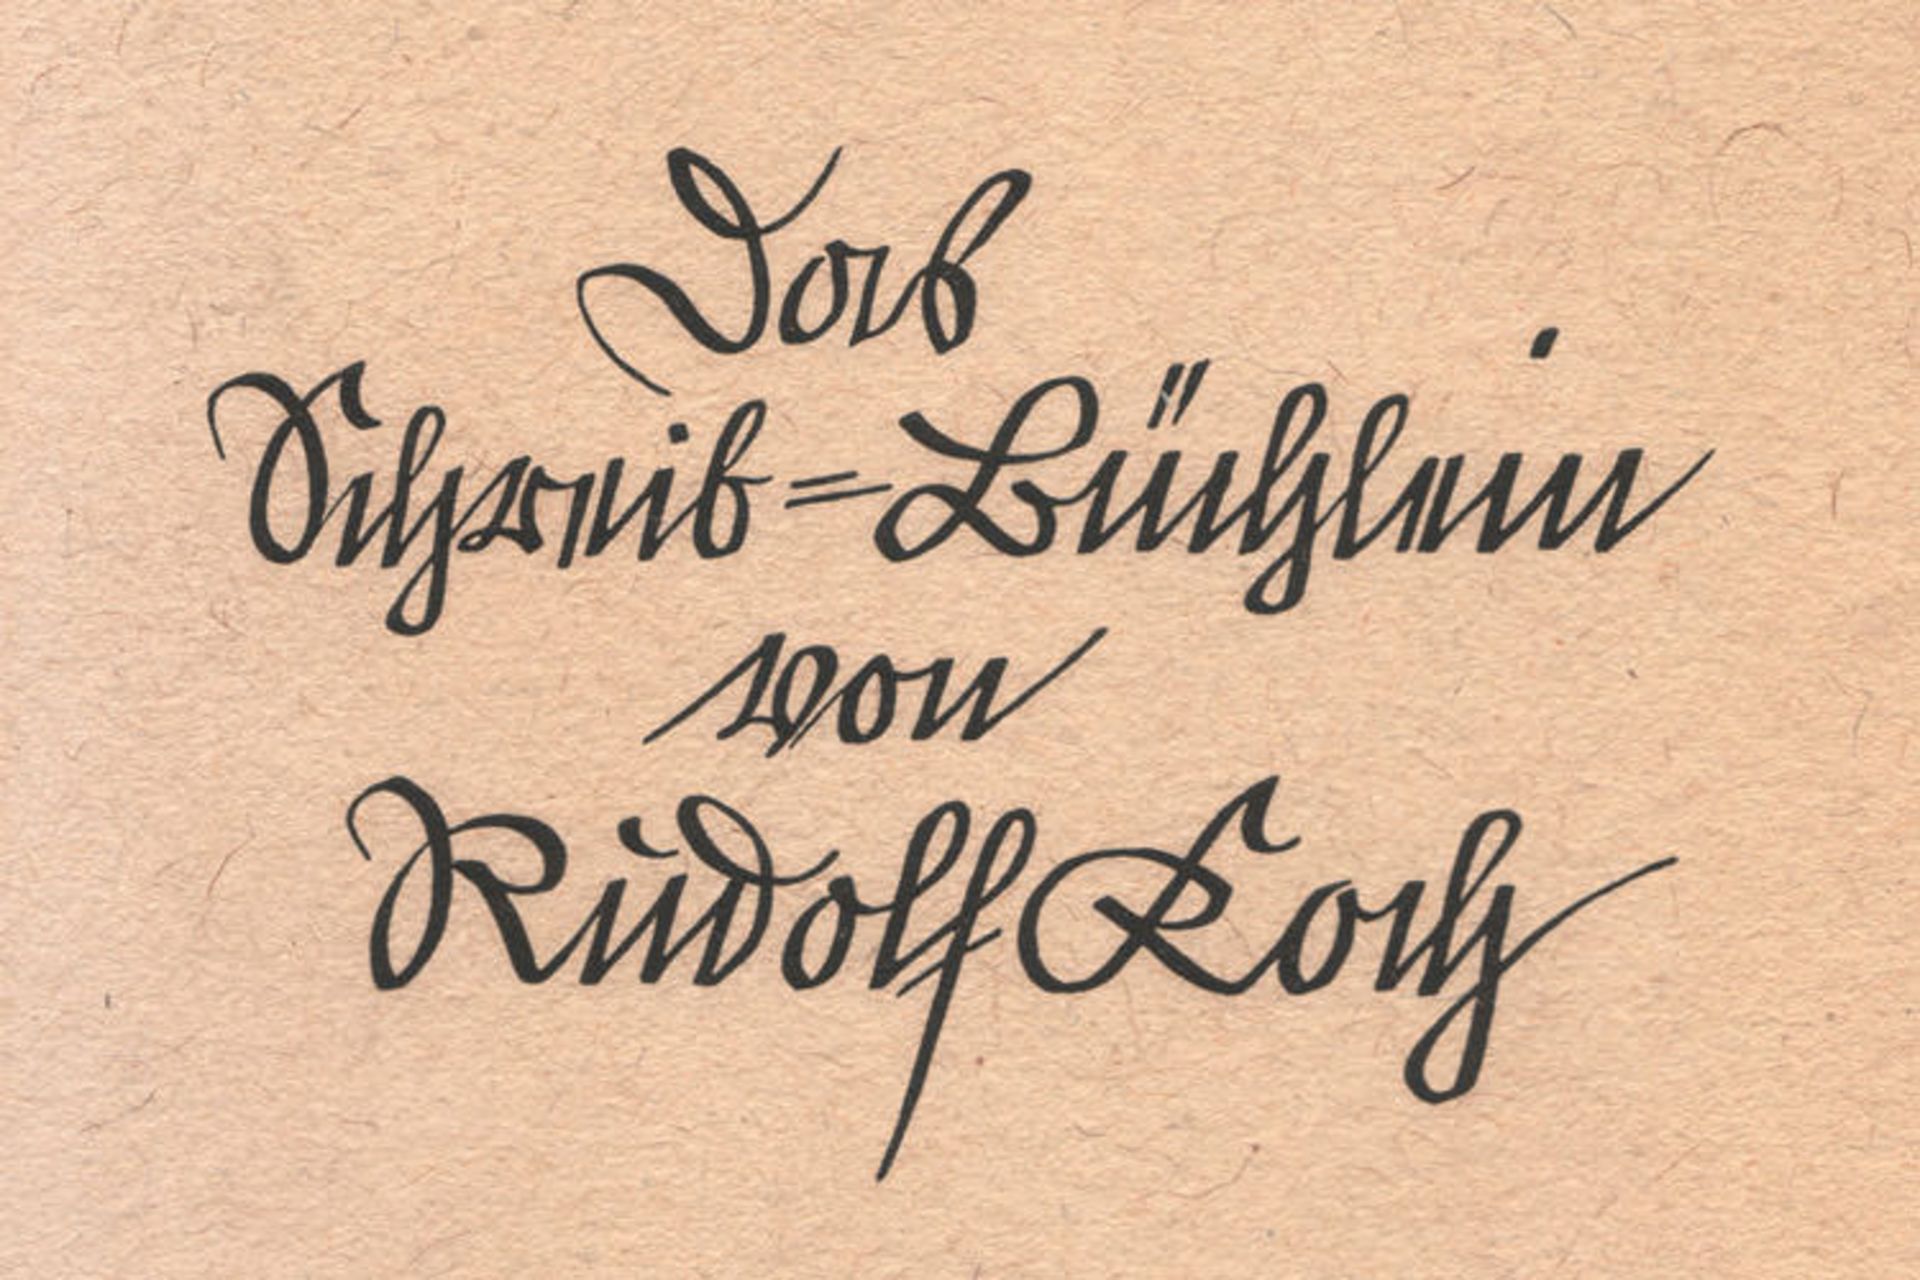 Das
Schreib=Büchlein
von
Rudolf Koch